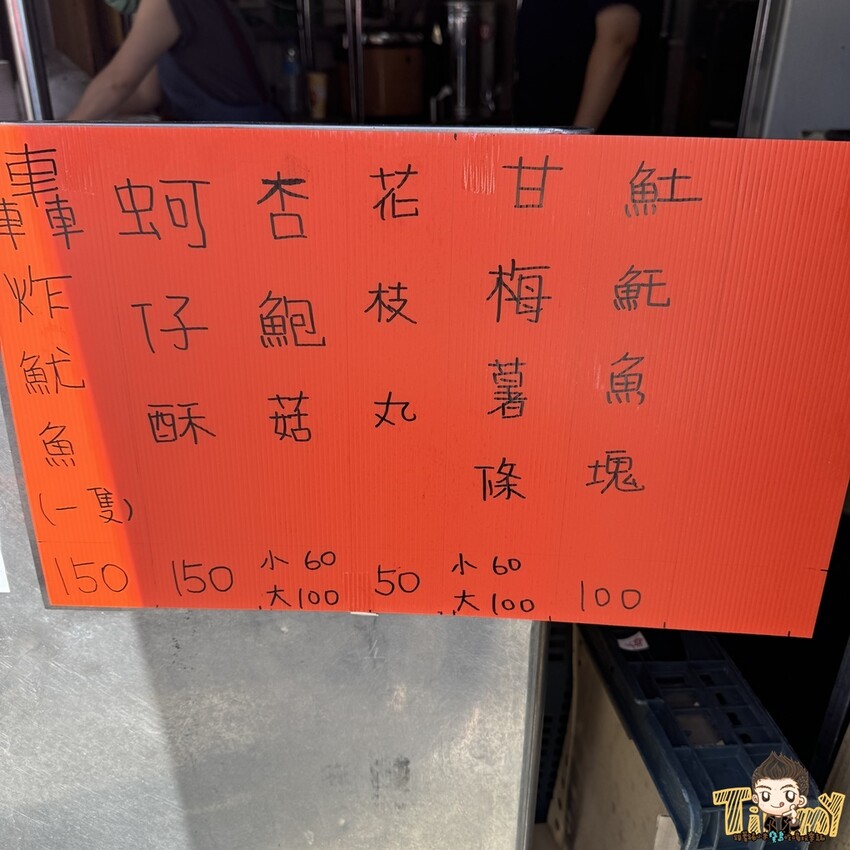 轟炸魷魚(一隻) 150
蚵仔酥 150
杏鮑菇 小60 大100
花枝丸 50
甘梅薯條 小60 大100
𩵚魠魚塊 100
Timmy